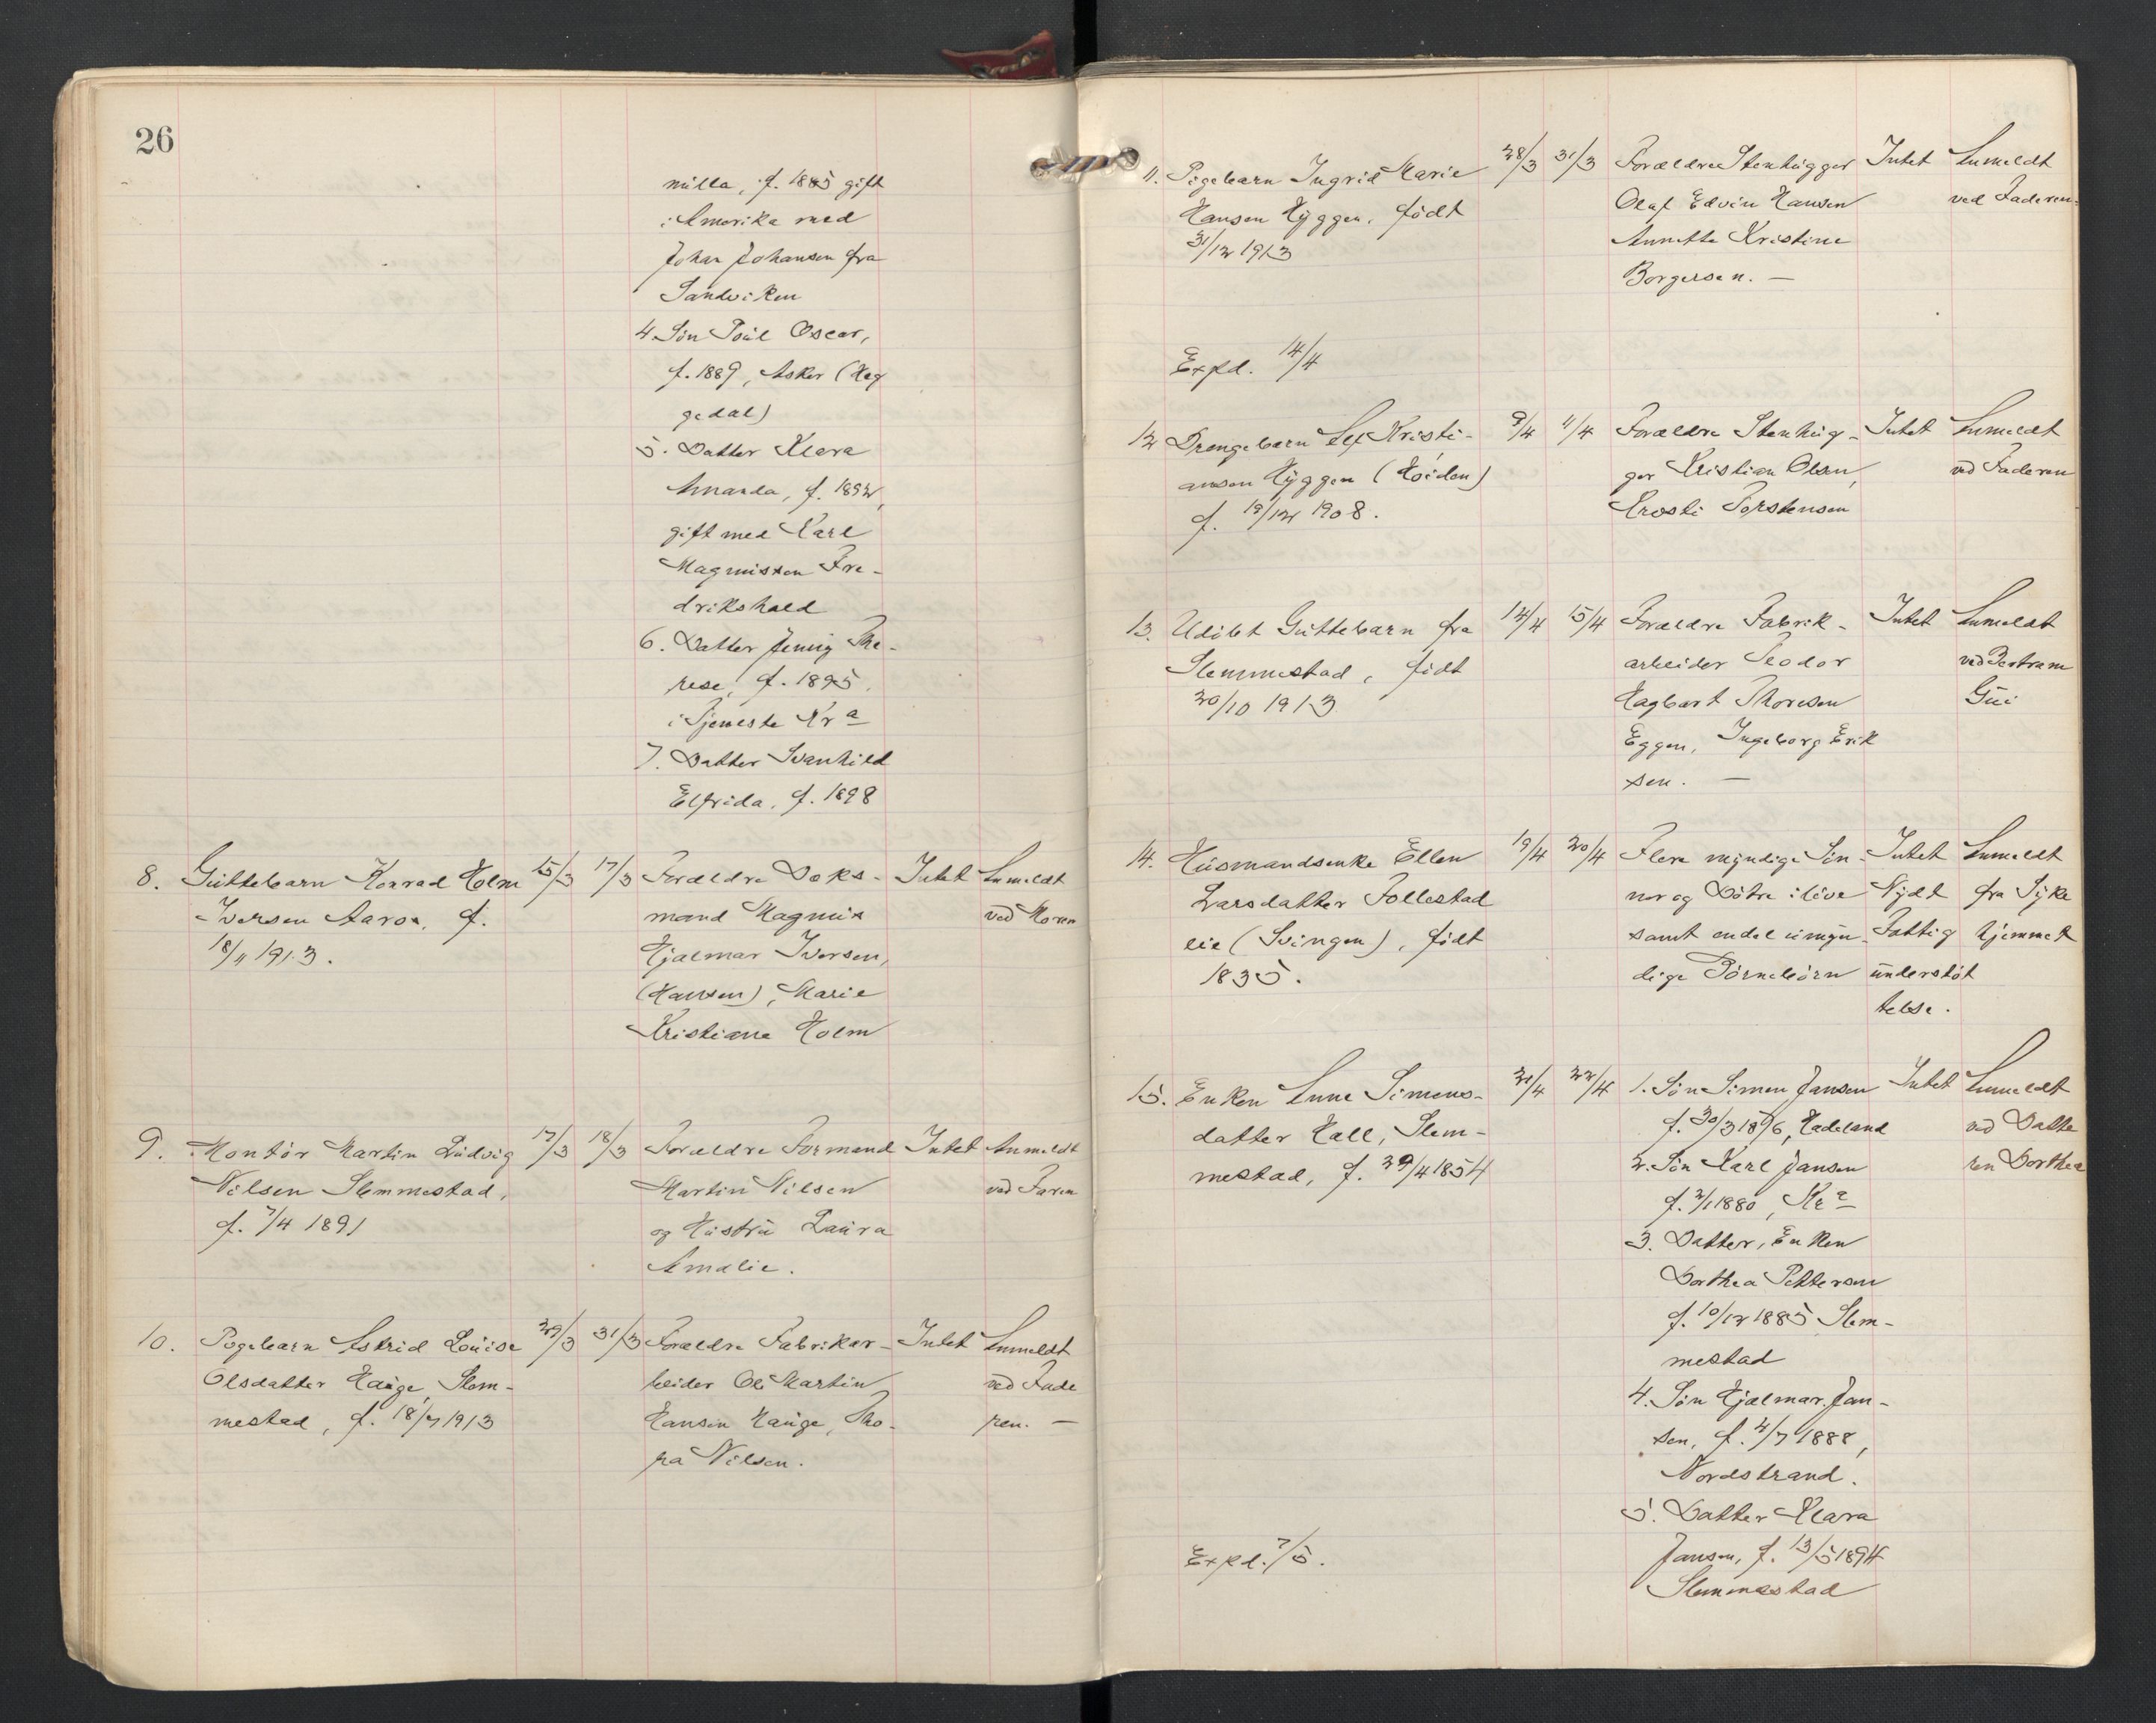 26
milla, f. 1885 gift
i Amerika med
Johan Johansen fra
Sandviken
4. Søn Poul Oscar,
f. 1889, Asker (Heg
gedal)
5. Datter Klara
Amanda, f. 1892,
gift med Karl
Magnussen Fre-
drikshald
6. Datter Jenny The-
rese, f. 1895,
i Tjeneste Kra
7. Datter Svanhild
Elfrida, f. 1898
8. Guttebarn Konrad Holm 15/3 17/3 Forældre Doks- Intet Anmeldt
Iversen Aaros, f. mand Magnus ved Moren
18/11 1913. Hjalmar Iversen,
(Hansen), Marie
Kristiane Holm
9. Montør Martin Ludvig 17/3 18/3 Forældre Formand Intet Anmeldt
Nilsen Slemmestad, Martin Nilsen ved Faren
f. 7/4 1891 og Hustru Laura
Amalie.
10. Pigebarn Astrid Louise 29/3 31/3 Forældre Fabrikar- Intet Anmeldt
Olsdatter Hauge, Slem- beider Ole Martin ved Fade
mestad, f. 18/7 1913 Hansen Hauge, Tho- ren. —
ra Nilsen.
11. Pigebarn Ingrid Marie 28/3 31/3 Forældre Stenhugger Intet Anmeldt
Hansen Hyggen, født Olaf Edvin Hansen ved Faderen.
31/12 1913 Annette Kristine
Borgersen. —
Expd. 14/4
12 Drengebarn Leif Kristi- 9/4 11/4 Forældre Stenhug- Intet Anmeldt
ansen Hyggen (Høiden) ger Kristian Olsen, ved Faderen
f. 19/12 1908. Torstensen
13. Udøbt Guttebarn fra 14/4 15/4 Forældre Fabrik- Intet Anmeldt
Slemmestad, født arbeider Teodor ved Bertram
20/10 1913 Hagbart Thoresen Gui
Eggen, Ingeborg Erik
sen. —
14. Husmandsenke Ellen 19/4 20/4 Flere myndige Søn- Intet Anmeldt
Larsdatter Follestad ner og Døtre i live Nydt fra Syke
eie (Svingen), født samt endel umyn- Fattig hjemmet
1835. dige Børnebørn understøt
telse.
15. Enken Anne Simens- 21/4 22/4 1. Søn Simen Jansen Intet Anmeldt
datter Hall, Slem- f. 30/3 1876, Hadeland ved Datte
mestad, f. 29/4 1854 2. Søn Karl Jansen ren Dorthea
f. 2/1 1880, Kra
3. Datter, Enken
Dorthea Pettersen
f. 10/12 1885 Slem-
mestad
4. Søn Hjalmar Jan-
sen, f. 2/7 1888,
Nordstrand.
5. Datter Klara
Expd. 7/5. Jansen, f. 13/5 1894
Slemmestad